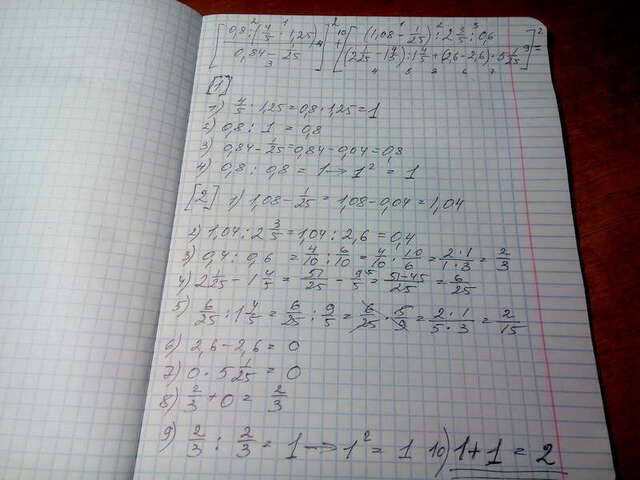 [0,8 : (4/5 · 1,25) / 0,84 - 1/25]² + [(1,08 - 1/25) : 2 3/5 : 0,6 / (2 1/25 - 1 4/5) : 1 4/5 + (2,6 - 2,6) · 5 1/25]² =
[1]
1) 4/5 · 1,25 = 0,8 · 1,25 = 1
2) 0,8 : 1 = 0,8
3) 0,84 - 1/25 = 0,84 - 0,04 = 0,8
4) 0,8 : 0,8 = 1 → 1² = 1
[2] 1) 1,08 - 1/25 = 1,08 - 0,04 = 1,04
2) 1,04 : 2 3/5 = 1,04 : 2,6 = 0,4
3) 0,4 : 0,6 = 4/10 : 6/10 = 4/10 · 10/6 = 2·1/1·3 = 2/3
4) 2 1/25 - 1 4/5 = 51/25 - 9/5 = 51-45/25 = 6/25
5) 6/25 : 1 4/5 = 6/25 : 9/5 = 6/25 · 5/9 = 2·1/5·3 = 2/15
6) 2,6 - 2,6 = 0
7) 0 · 5 1/25 = 0
8) 2/3 + 0 = 2/3
9) 2/3 : 2/3 = 1 → 1² = 1 10) 1+1 = 2